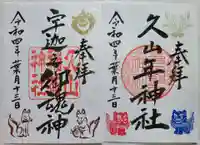 奉拝
久山年神社
令和四年葉月十三日
奉拝
宇迦之御魂神
令和四年葉月十三日